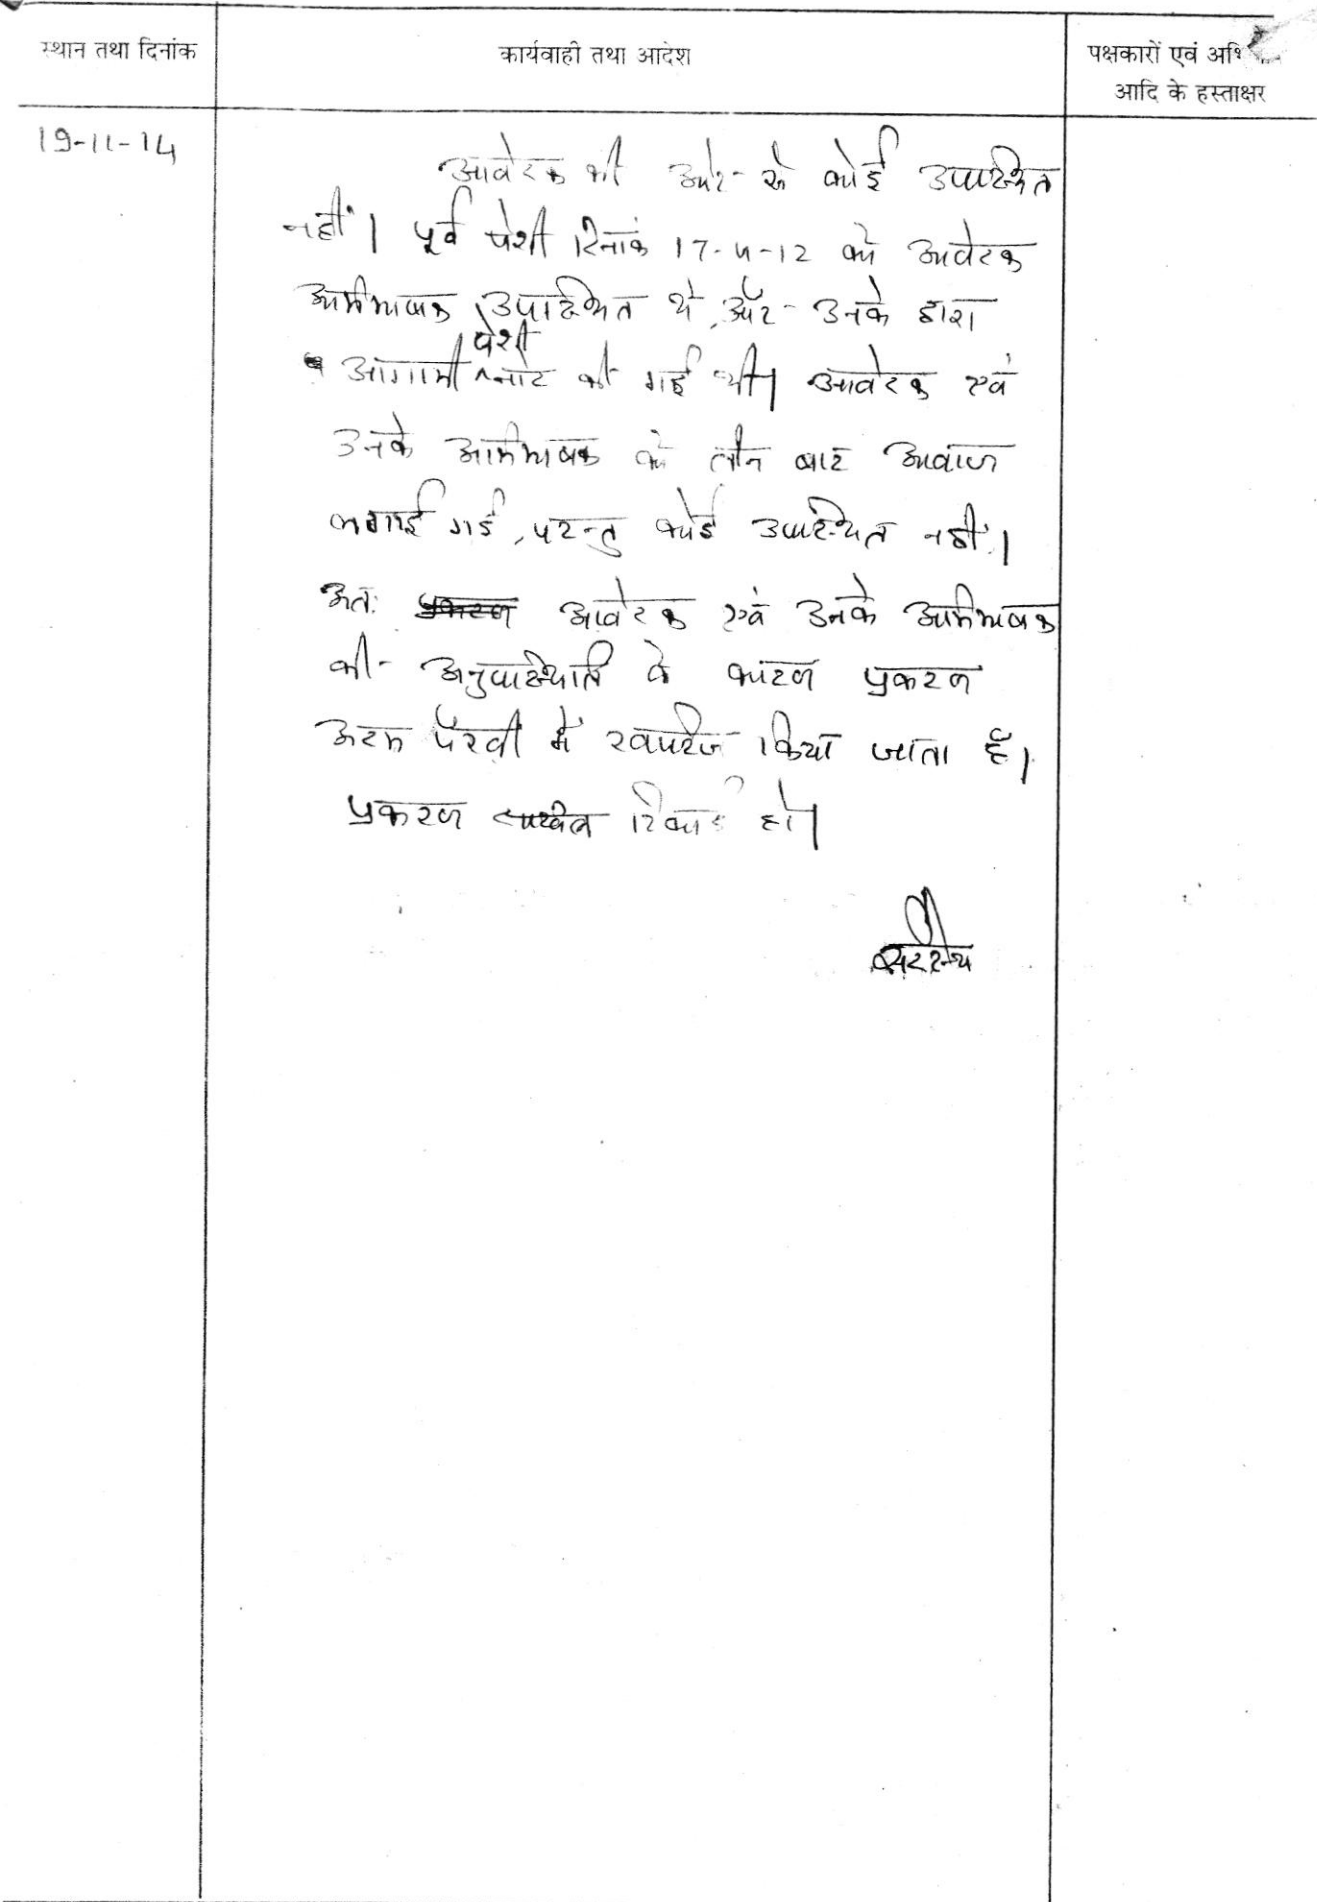 स्थान तथा दिनांक
कार्यवाही तथा आदेश
पक्षकारों एवं अभि
आदि के हस्ताक्षर
19-11-14
आवेदक की ओर से कोई उपस्थित
नहीं। पूर्व पेशी दिनांक 17-4-12 को आवेदक
अभिभाषक उपस्थित थे, और उनके द्वारा
आगामी पेशी नोट की गई थी। आवेदक एवं
उनके अभिभाषक को तीन बार आवाज
लगाई गई, परन्तु कोई उपस्थित नहीं।
अतः प्रकरण आवेदक एवं उनके अभिभाषक
की अनुपस्थिति के कारण प्रकरण
अदम पैरवी में खारिज किया जाता है।
प्रकरण दाखिल रिकार्ड हो।
सदस्य